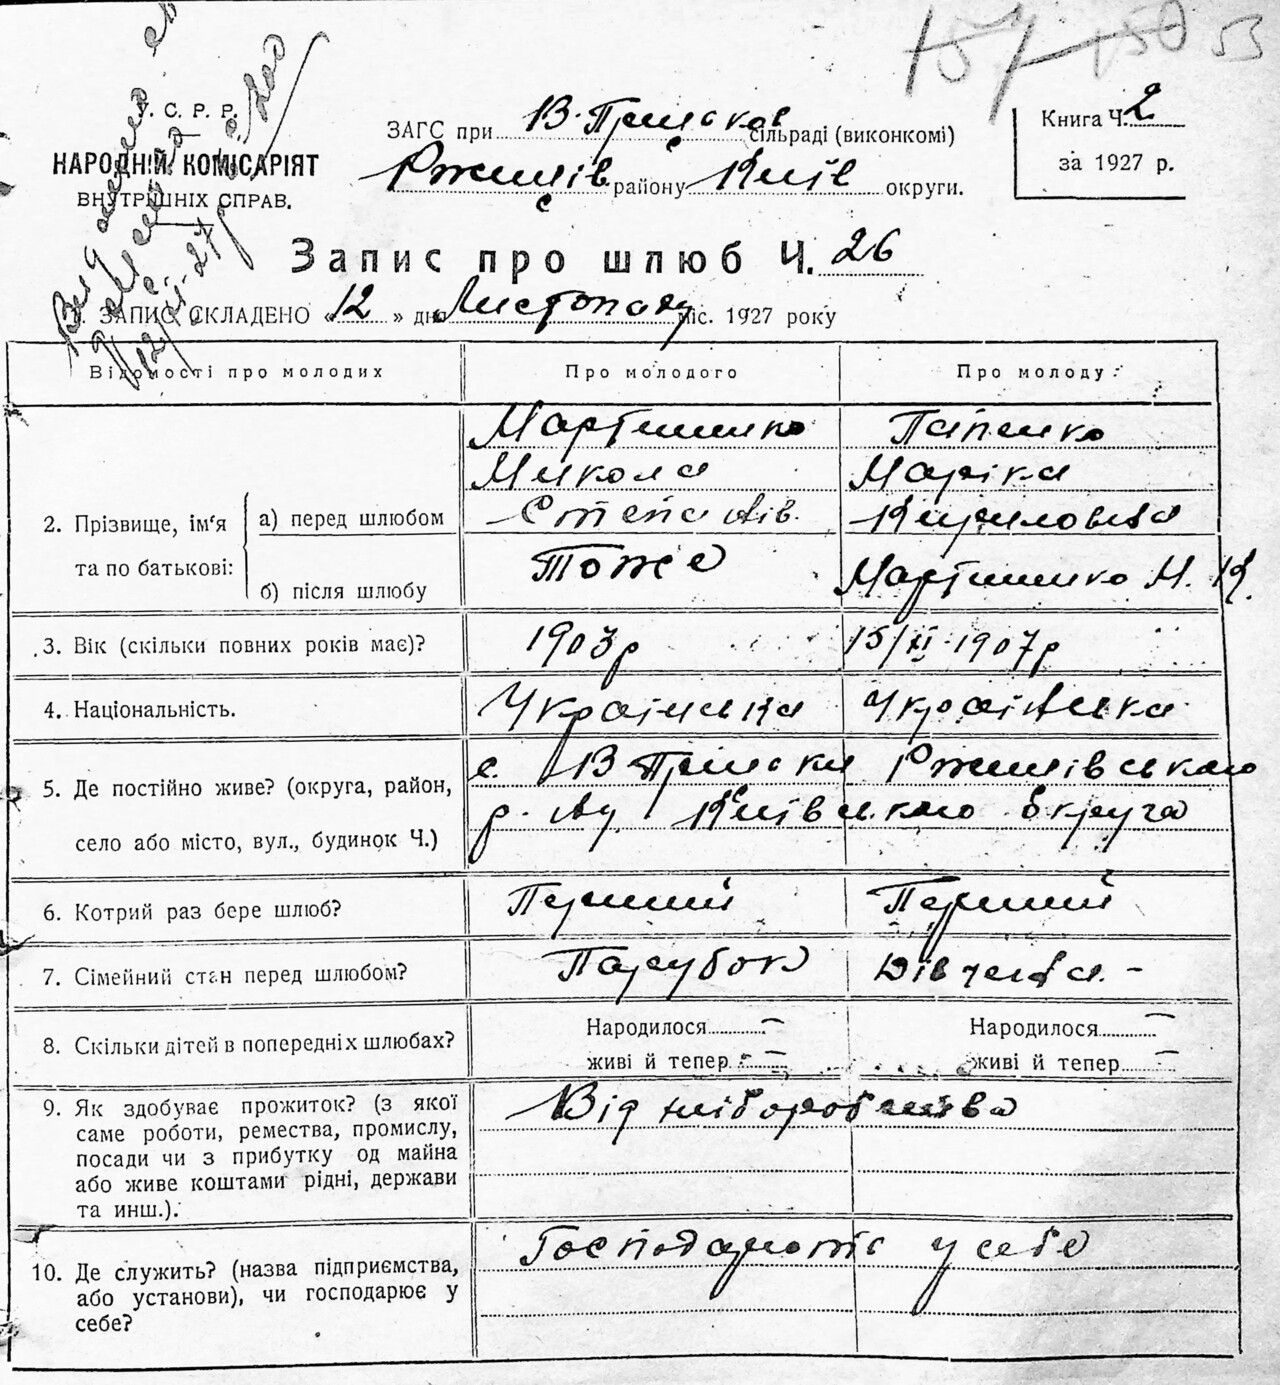 157 150 53
У. С. Р. Р.
НАРОДНІЙ КОМІСАРІЯТ
ВНУТРІШНІХ СПРАВ.
ЗАГС при В. Прицьков сільраді (виконкомі)
Ржищів району Київ округи.
Книга Ч. 2
за 1927 р.
Запис про шлюб Ч. 26
1. ЗАПИС СКЛАДЕНО «12» дня Листопаду міс. 1927 року
Відомості про молодих
Про молодого
Про молоду:
2. Прізвище, ім'я та по батькові:
а) перед шлюбом
Мартиненко
Микола
Степанів.
Папенко
Маріка
Кириловна
б) після шлюбу
Тоже
Мартиненко М. К.
3. Вік (скільки повних років має)?
1903р
15/XI-1907р
4. Національність.
Українська
Українська
5. Де постійно живе? (округа, район,
село або місто, вул., будинок Ч.)
с. В Прицьки Ржищівського
р-ну Київського округа
6. Котрий раз бере шлюб?
Перший
Перший
7. Сімейний стан перед шлюбом?
Парубок
Дівчина. -
8. Скільки дітей в попередніх шлюбах?
Народилося —
живі й тепер —
Народилося —
живі й тепер —
9. Як здобуває прожиток? (з якої
саме роботи, ремества, промислу,
посади чи з прибутку од майна
або живе коштами рідні, держави
та инш.).
Від хліборобства
10. Де служить? (назва підприємства,
або установи), чи господарює у
себе?
Господарює у себе